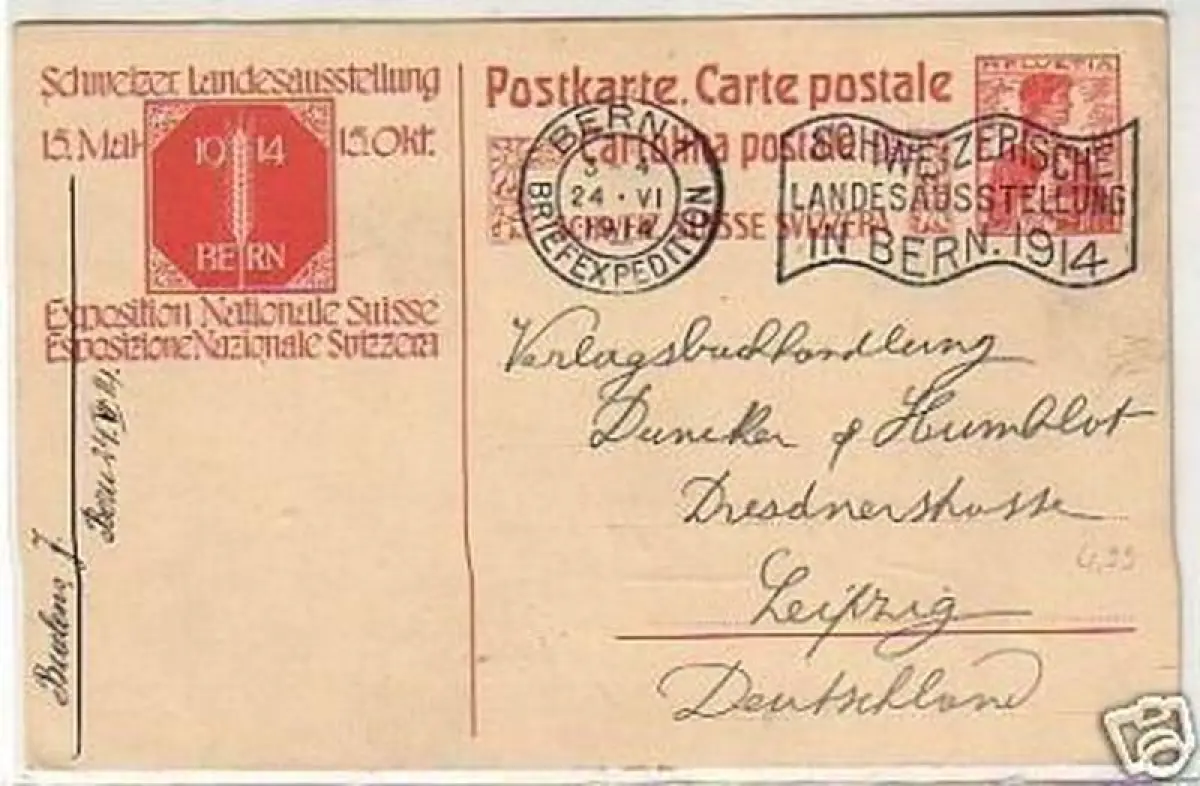 Schweizer Landesausstellung
15. Mai
15. Okt.
19 14
BERN
Exposition Nationale Suisse
Esposizione Nazionale Svizzera
Postkarte. Carte postale
Cartolina postale
SCHWEIZ SUISSE SVIZZERA
HELVETIA
BERN 1
24 · VI
1914
BRIEFEXPEDITION
SCHWEIZERISCHE
LANDESAUSSTELLUNG
IN BERN. 1914
Verlagsbuchhandlung
Duncker & Humblot
Dresdnerstrasse
Leipzig
Deutschland
Bern 24. VI 14.
4,99